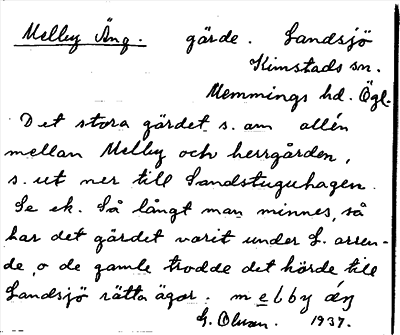 Melby Äng. gärde. Landsjö
Kimstads sn.
Memmings hd. Ögl.
Det stora gärdet s. om allén
mellan Melby och herrgården,
s. ut ner till Landstuguhagen.
Se ek. Så långt man minnes, så
har det gärdet varit under L. arren-
de, o de gamle trodde det hörde till
Landsjö rätta ägor. melby áŋ
G. Olsson. 1937.